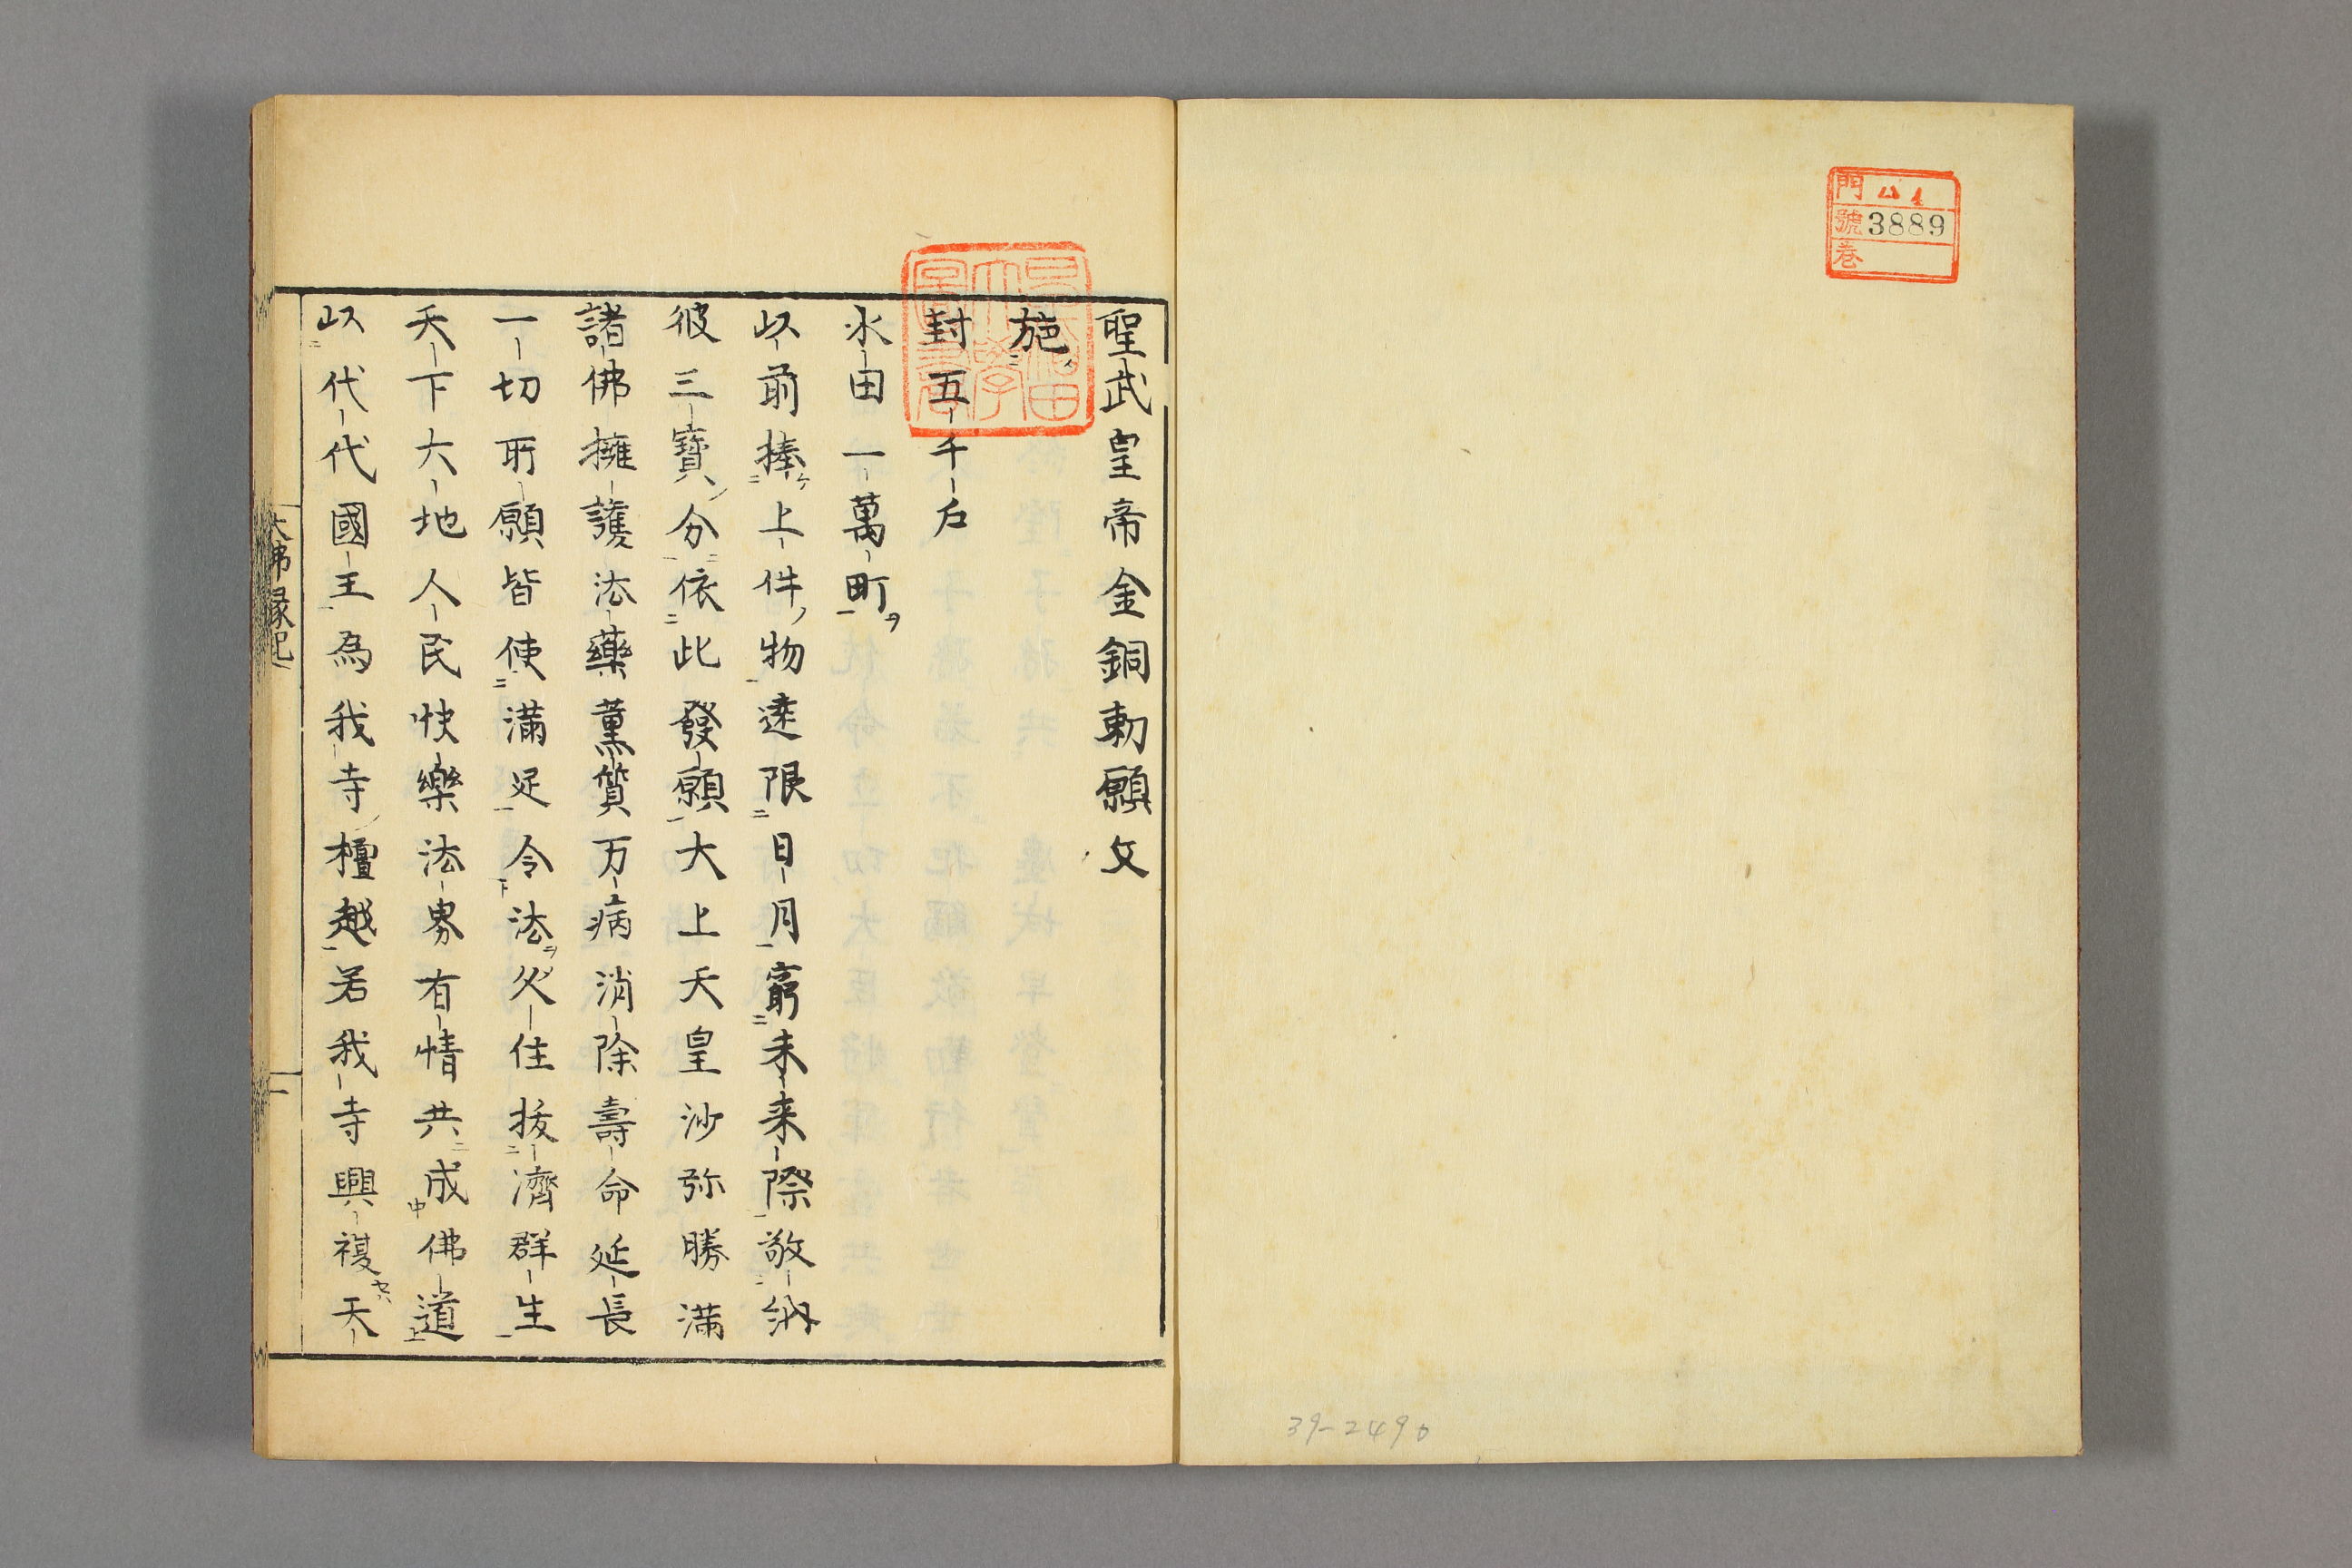 門
號 3889
卷
39-2490
聖武皇帝金銅勅願文
施
封五千戶
水田一萬町
以前捧上件物遠限日月窮未来際敬納
彼三寶分依此發願大上天皇沙弥勝滿
諸佛擁護法藥薫質万病消除壽命延長
一切所願皆使滿足令法久住拔濟群生
天下大地人民快樂法界有情共成佛道
以代代國王為我寺檀越若我寺興複天
大佛縁起
一